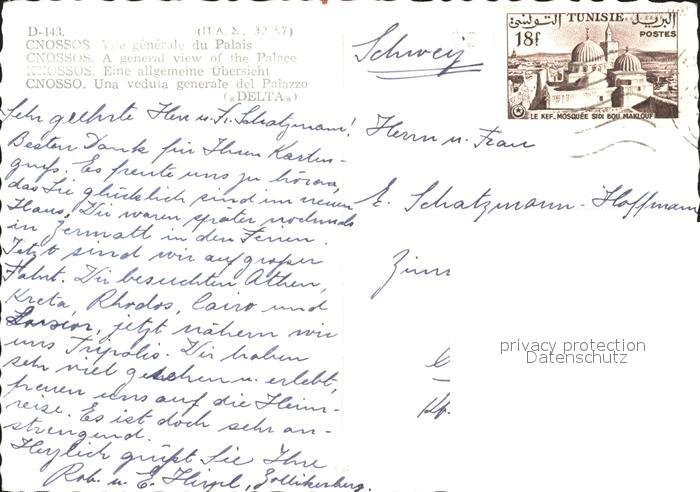 D-143.
(Π.Α.Σ. 32'57)
CNOSSOS. Vue générale du Palais
CNOSSOS. A general view of the Palace
KNOSSOS. Eine allgemeine Übersicht
CNOSSO. Una veduta generale del Palazzo
(«DELTA»)
Sehr geehrte Herr u. Fr. Schatzmann!
Besten Dank für Ihren Karten-
gruß. Es freute uns zu hören,
das Sie glücklich sind im neuen
Haus. Wir waren später nochmals
in Zermatt in den Ferien.
Jetzt sind wir auf großer
Fahrt. Wir besuchten Athen,
Kreta, Rhodos, Cairo und
jetzt nähern wir
uns Tripolis. Wir haben
sehr viel gesehen u. erlebt,
freuen uns auf die Heim-
reise. Es ist doch sehr an-
strengend.
Herzlich grüßt Sie Ihre
Rob. u. E. Zollikerberg.
Schweiz
التونسي البريد
TUNISIE
18f
POSTES
LE KEF. MOSQUÉE SIDI BOU MAKLOUF
Herrn u. Frau
E. Schatzmann-Hoffmann
Zim
privacy protection
Datenschutz